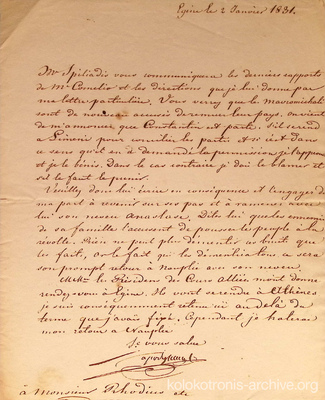 Egine le 2 Janvier 1831.
Mr Spiliadis vous communiquera les derniers rapports
de Mr Cornelio et les directions que je lui donne par
ma lettre particulière. Vous verrez que les Mavromichali
sont de nouveau accusés de remuer leur pays. on vient
de m'annoncer que Constantin est parti. S'il se rend
à Limeni pour concilier les partis et si c'est dans
ce sens qu'il en a demandé la permission, je l'approuve
et je le bénis. Dans le cas contraire je dois le blamer et
s'il le faut le punir.
Veuillez donc lui écrire en conséquence et l'engager de
ma part à revenir sur ses pas et à ramener avec
lui son neveu Anastase. Dites lui que les ennemis
de sa famille l'accusent de pousser le peuple à la
révolte. Rien ne peut plus démentir ce bruit que
les faits, or le fait qui les démentira tous ce sera
son prompt retour à Nauplie avec son neveu.
MM. les Résidens des Cours Alliées m'ont donné
rendez-vous à Egine. Ils vont se rendre à Athènes
je suis conséquemment retenu ici au delà du
terme que j'avais fixé. Cependant je haterai
mon retour à Nauplie
Je vous salue
à Monsieur Rhodius etc
kolokotronis-archive.org